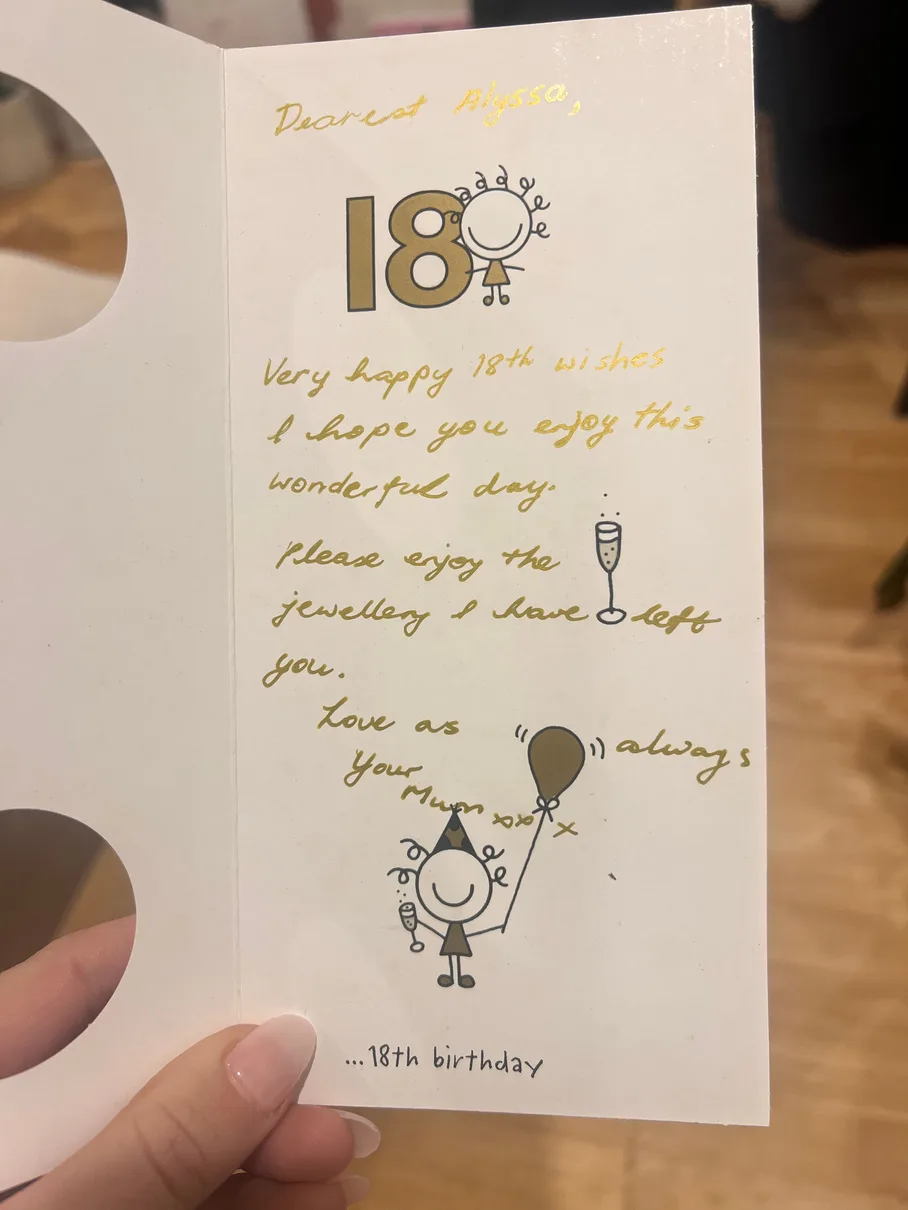 Dearest Alyssa,
18
Very happy 18th wishes
I hope you enjoy this
wonderful day.
Please enjoy the
jewellery I have left
you.
Love as always
Your
Mum xx x
...18th birthday